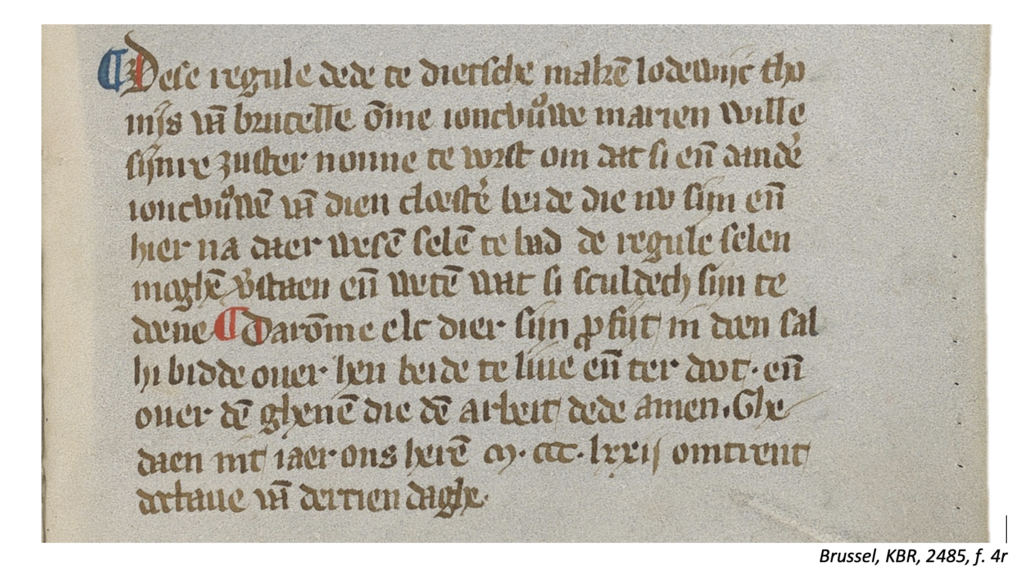 Dese regule dede te dietsche makē lodewijc tho
nijs vā brucelle ōme ioncvͦuwe marien wille
sijnre zuster nonne te vorst om dat si eñ andeʼ
ioncvͦuwē vā dien cloesteʼ beide die nv sijn eñ
hier na daer wesē selē te bad de regule selen
moghē vʼstaen eñ wetē wat si sculdech sijn te
doene Darōme elc dier sijn ꝓfijt in doen sal
hi bidde ouer hen beide te liue eñ ter doot· eñ
ouer dē ghenē die dē arbeit dede amen· Ghe
daen int iaer ons herē m· ccc· lxxij omtrent
octaue vā dertien daghe·
Brussel, KBR, 2485, f. 4r